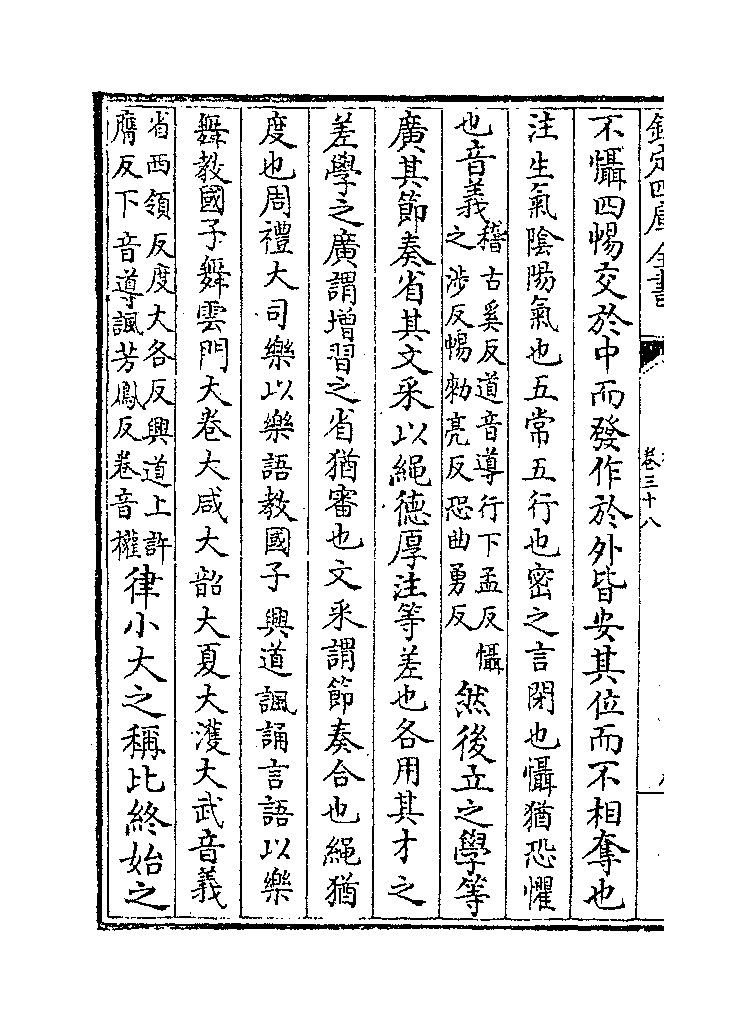 欽定四庫全書
卷三十八
不懾四暢交於中而發作於外皆安其位而不相奪也
注生氣陰陽氣也五常五行也密之言閉也懾猶恐懼
也音義稽古奚反道音導行下孟反懾之涉反暢勑亮反恐曲勇反然後立之學等
廣其節奏省其文采以繩德厚注等差也各用其才之
差學之廣謂增習之省猶審也文采謂節奏合也繩猶
度也周禮大司樂以樂語教國子興道諷誦言語以樂
舞教國子舞雲門大卷大咸大韶大夏大濩大武音義
省西領反度大各反興道上許膺反下音導諷芳鳳反卷音權律小大之稱比終始之